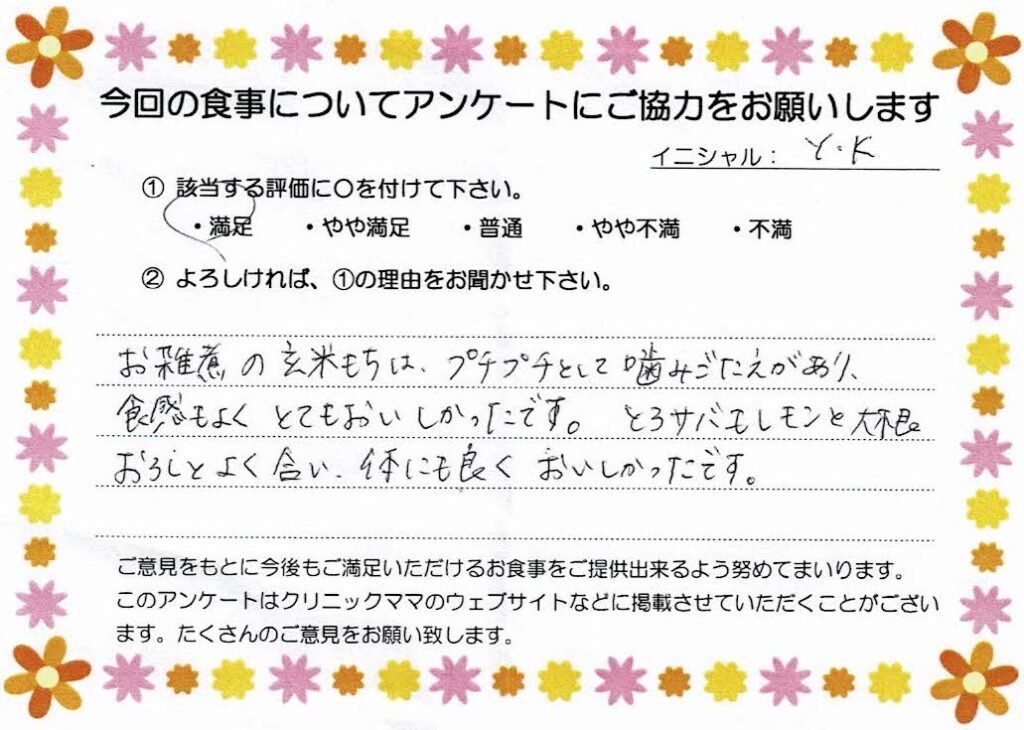 今回の食事についてアンケートにご協力をお願いします
イニシャル： Y・K
① 該当する評価に〇を付けて下さい。
・満足 ・やや満足 ・普通 ・やや不満 ・不満
② よろしければ、①の理由をお聞かせ下さい。
お雑煮の玄米もちは、プチプチとして噛みごたえがあり、
食感もよくとてもおいしかったです。 とろサバもレモンと大根
おろしとよく合い、体にも良くおいしかったです。
ご意見をもとに今後もご満足いただけるお食事をご提供出来るよう努めてまいります。
このアンケートはクリニックママのウェブサイトなどに掲載させていただくことがござい
ます。たくさんのご意見をお願い致します。